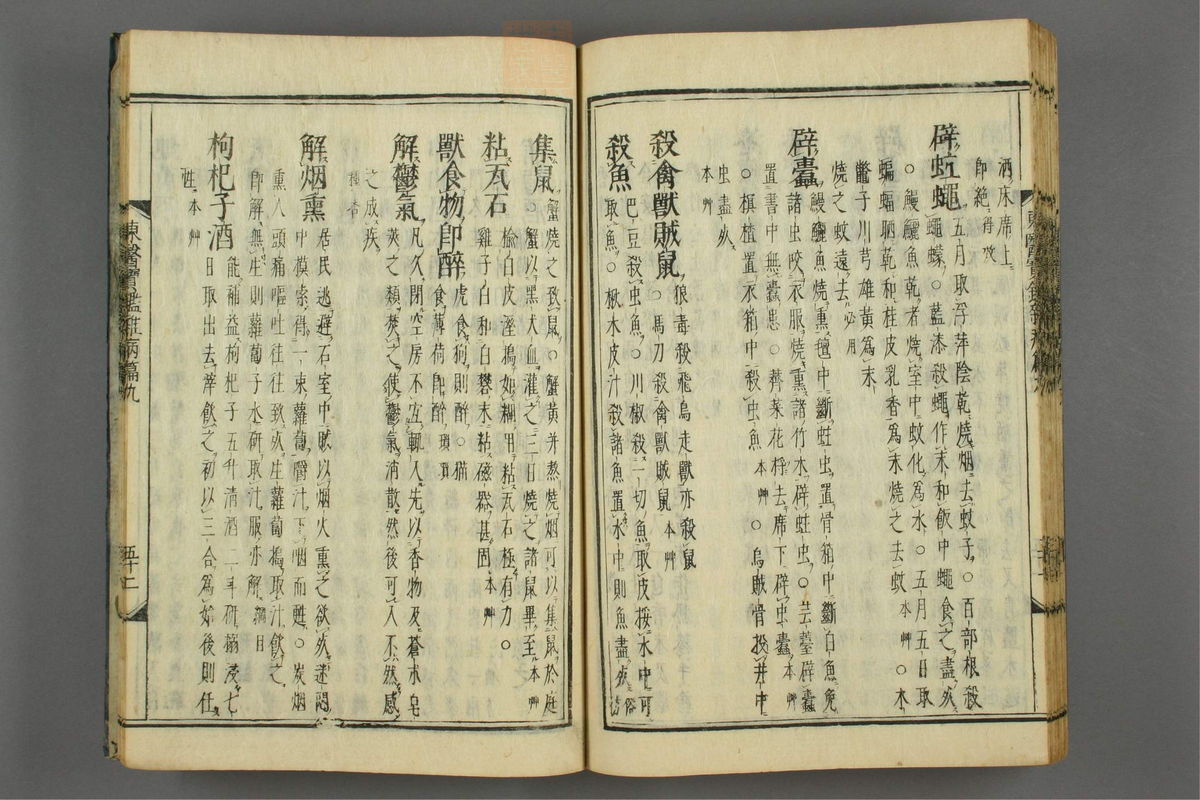 洒床席上
即絶得效
辟蚊蠅五月取浮萍陰乾燒烟去蚊子○百部根殺
蠅蠓○藍漆殺蠅作末和飯中蠅食之盡死
○鰻鱺魚乾者燒室中蚊化為水○五月五日取
蝙蝠晒乾和桂皮乳香為末燒之去蚊本艸○木
鱉子川芎雄黃為末
燒之蚊遠去必用
辟蠹鰻鱺魚燒熏氊中斷蛀虫置骨箱中斷白魚免
諸虫咬衣服燒熏諸竹木辟蛀虫○芸薹辟蠹
置書中無蠹患○薺菜花布去席下辟虫蠹本
○榠樝置衣箱中殺虫魚本艸○烏賊骨投井中
虫盡死
本艸
殺禽獸賊鼠狼毒殺飛鳥走獸亦殺鼠
○馬刀殺禽獸賊鼠本艸
殺魚巴豆殺虫魚○川椒殺一切魚取皮挼水中可
取魚○楸木皮汁殺諸魚置水中則魚盡死俗方
東醫寶鑑雜病篇九
五十二
集鼠蟹燒之致鼠○蟹黃并螯燒烟可以集鼠於庭
○蟹以黑犬血灌之三日燒之諸鼠畢至本艸
粘瓦石榆白皮溼搗如糊用粘瓦石極有力○
雞子白和白礬末粘磁器甚固本艸
獸食物卽醉虎食狗則醉○猫
食薄荷卽醉瑣碎
解鬱氣凡久閉空房不宜輒入先以香物及蒼朮皂
莢之類焚之使鬱氣消散然後可入不然感
之成疾
種杏
解烟熏居民逃避石室中賊以烟火熏之欲死迷悶
中摸索得一束蘿葍嚼汁下咽而甦○炭烟
熏人頭痛嘔吐往往致死生蘿葍搗取汁飲之
卽解無生則蘿葍子水硏取汁服亦解綱目
枸杞子酒能補益枸杞子五升清酒二斗硏搦浸七
日取出去滓飲之初以三合為始後則任
性本艸